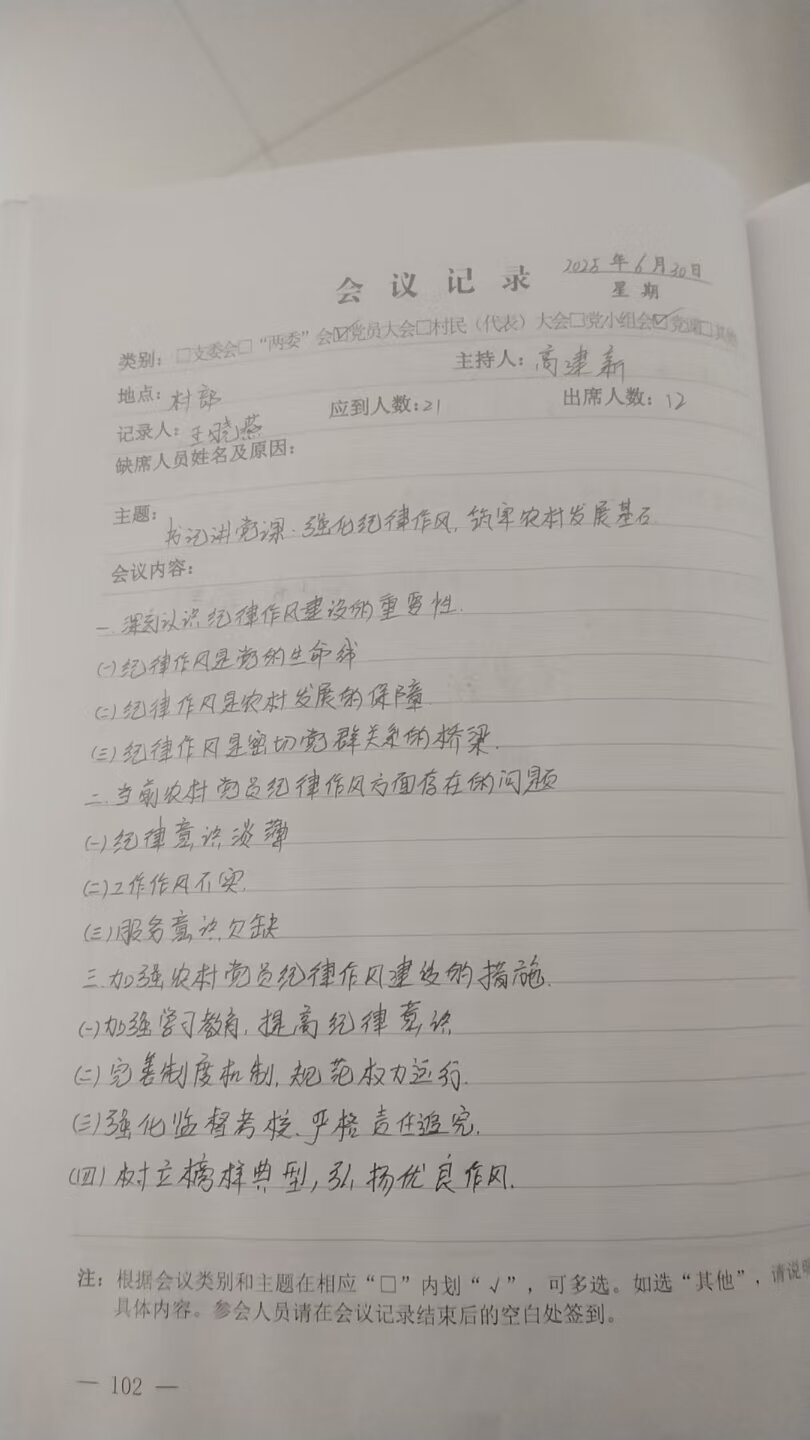 会议记录 2025年6月30日
星期
类别：□支委会□“两委”会☑党员大会□村民（代表）大会□党小组会☑党课□其他
地点：村部 主持人：高建新
记录人：王晓燕 应到人数：21 出席人数：12
缺席人员姓名及原因：
主题：书记讲党课·强化纪律作风，筑牢农村发展基石
会议内容：
一.深刻认识纪律作风建设的重要性.
(一)纪律作风是党的生命线
(二)纪律作风是农村发展的保障.
(三)纪律作风是密切党群关系的桥梁.
二.当前农村党员纪律作风方面存在的问题
(一)纪律意识淡薄
(二)工作作风不实.
(三)服务意识欠缺
三.加强农村党员纪律作风建设的措施.
(一)加强学习教育，提高纪律意识
(二)完善制度机制，规范权力运行.
(三)强化监督考核、严格责任追究.
(四)树立榜样典型，弘扬优良作风.
注：根据会议类别和主题在相应“□”内划“√”，可多选。如选“其他”，请说明
具体内容。参会人员请在会议记录结束后的空白处签到。
— 102 —